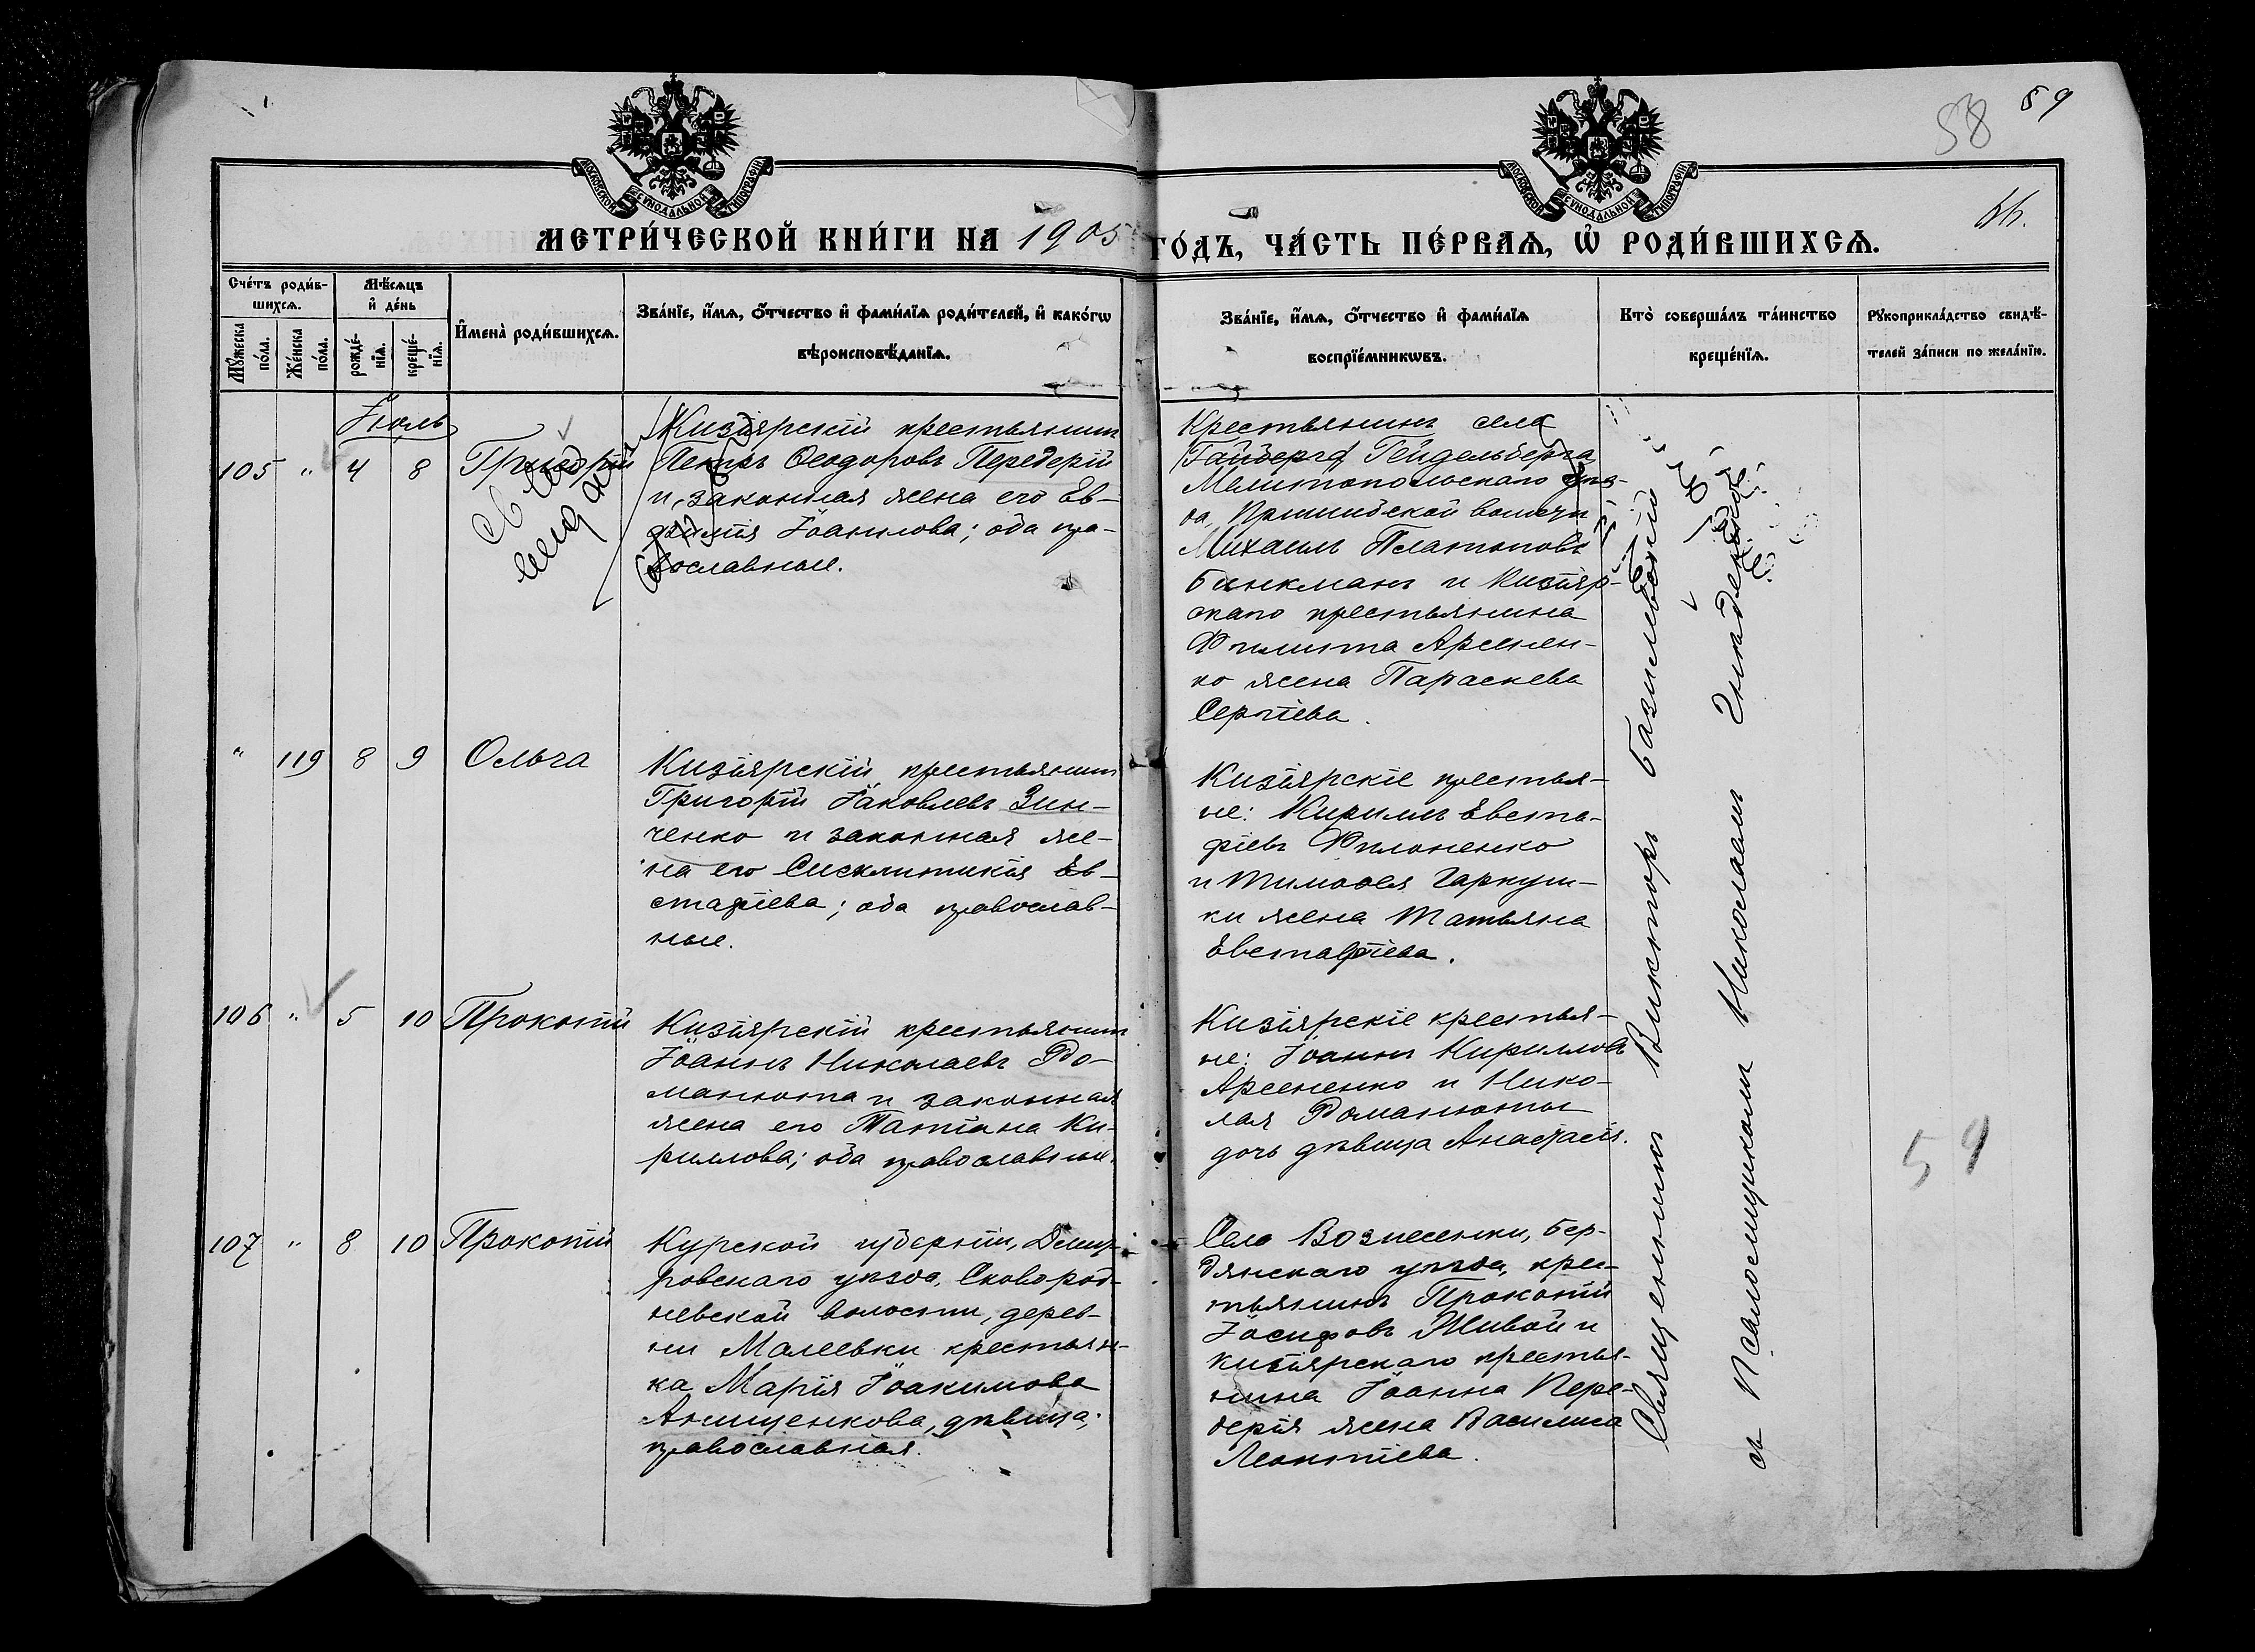 58 59
66.
МОСКОВСКОЙ СѴНОДАЛЬНОЙ ТИПОГРАФІИ
МОСКОВСКОЙ СѴНОДАЛЬНОЙ ТИПОГРАФІИ
МЕТРИ́ЧЕСКОЙ КНИ́ГИ НА 1905 ГО́ДЪ, ЧА́СТЬ ПЕ́РВАѦ, Ѽ РОДИ́ВШИХСѦ.
Сче́тъ роди́в-
шихсѧ.
Мꙋ́жеска
по́ла.
Же́нска
по́ла.
Мѣ́сѧцъ
и҆ де́нь
рожде́-
нїѧ.
креще́-
нїѧ.
И҆мена̀ роди́вшихсѧ.
Зва́нїе, и҆́мѧ, ѻ҆́тчество и҆ фами́лїѧ роди́телей, и҆ како́гѡ
вѣроисповѣ́данїѧ.
Зва́нїе, и҆́мѧ, ѻ҆́тчество и҆ фами́лїѧ
воспрїе́мникѡвъ.
Кто̀ соверша́лъ та́инство
креще́нїѧ.
Рꙋкоприкла́дство свидѣ́-
телей за́писи по жела́нїю.
Іюль
105 " 4 8 Григорій
Кизіярскій крестьянинъ
Петръ Ѳеодоровъ Передерій
и законная жена его Ев-
фимія Іоаннова; оба пра-
вославные.
Крестьянинъ села
Гайберга Гейдельберга
Мелитопольскаго уѣз-
да, Пришибской волости
Михаилъ Платоновъ
Бинкманъ и Кизіяр-
скаго крестьянина
Филиппа Арсенен-
ко жена Параскева
Сергіева.
" 119 8 9 Ольга
Кизіярскій крестьянинъ
Григорій Іаковлевъ Зин-
ченко и законная же-
на его Сисклитикія Ев-
стафіева; оба православ-
ные.
Кизіярскіе крестья-
не: Кириллъ Евста-
фіевъ Филоненко
и Тимоѳея Гаркуш-
ки жена Татьяна
Евстафіева.
106 " 5 10 Прокопій
Кизіярскій крестьянинъ
Іоаннъ Николаевъ Ро-
манюта и законная
жена его Татіана Ки-
риллова; оба православные.
Кизіярскіе крестья-
не: Іоаннъ Кирилловъ
Арсененко и Нико-
лая Романюты
дочь дѣвица Анастасія.
107 " 8 10 Прокопій
Курской губерніи, Дмит-
ровскаго уѣзда, Сковород-
невской волости, дерев-
ни Малеевки крестьян-
ка Марія Іоакимова
Анищенкова, дѣвица;
православная.
Села Вознесенки, Бер-
дянскаго уѣзда, крес-
тьянинъ Прокопій
Іосифовъ Живой и
кизіярскаго крестья-
нина Іоанна Пере-
дерія жена Василиса
Леонтіева.
Священникъ Викторъ Базилевскій
съ Псаломщикомъ Николаемъ
54